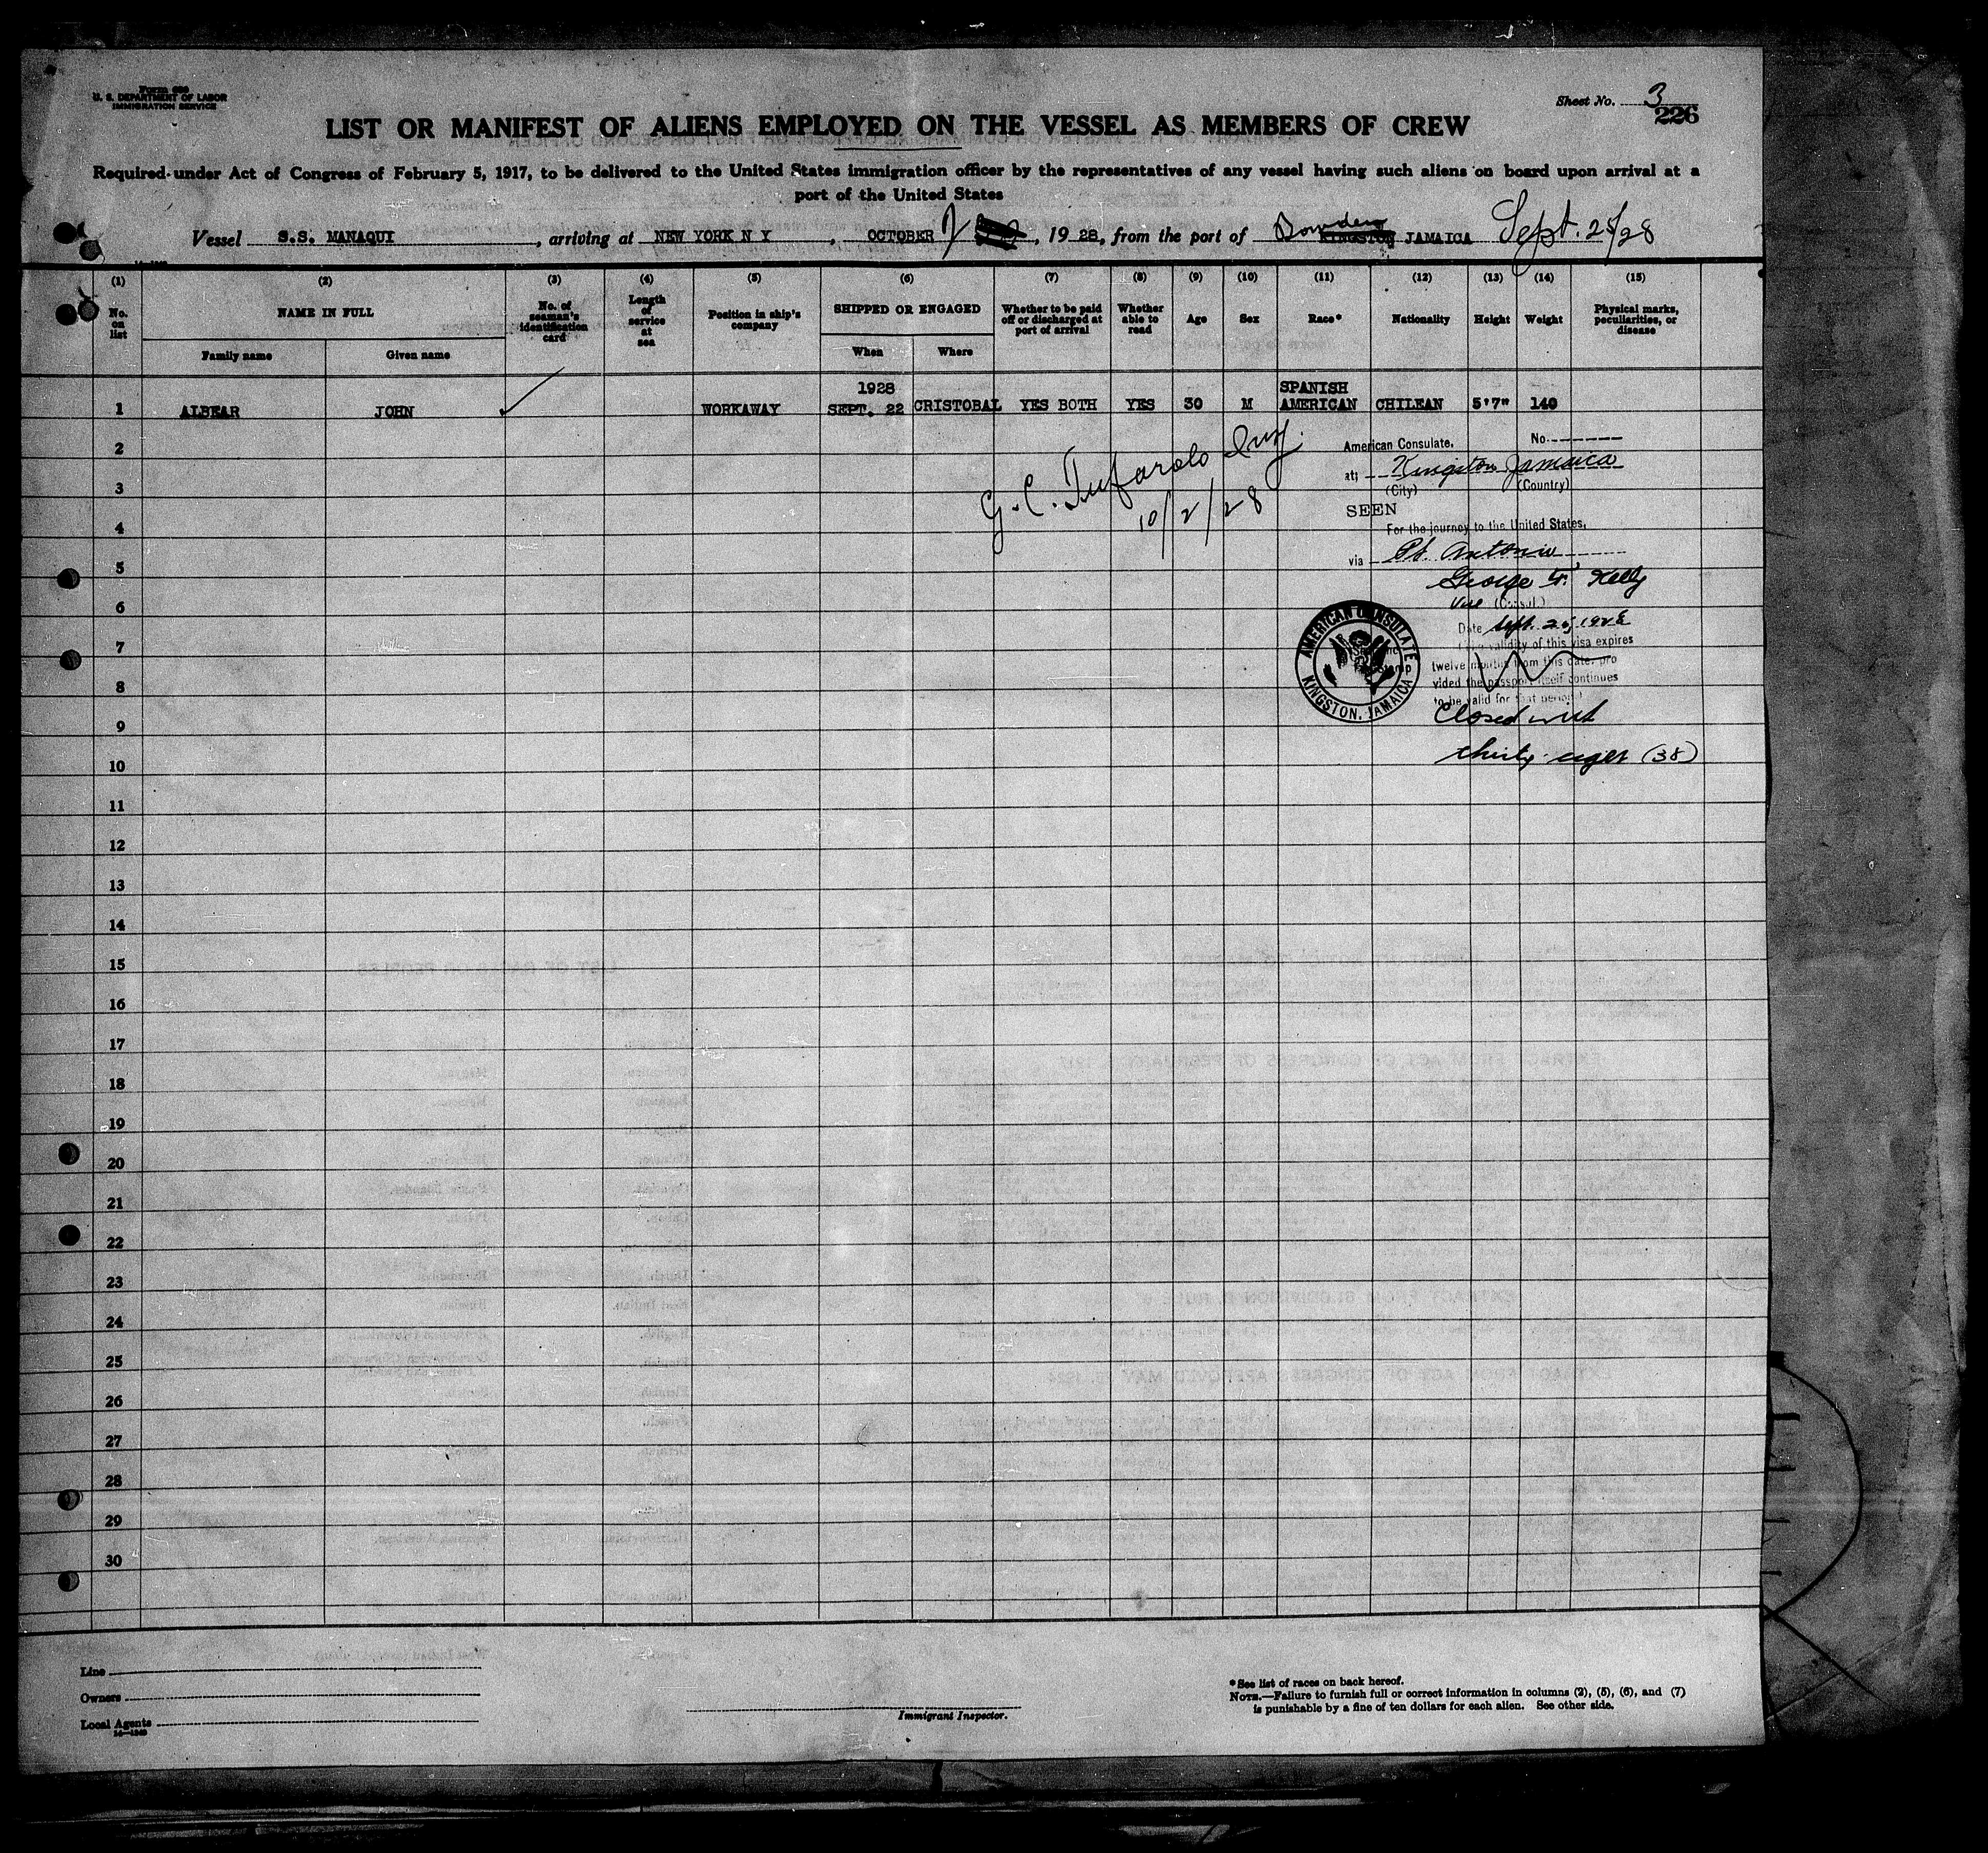 Form 680
U. S. DEPARTMENT OF LABOR
IMMIGRATION SERVICE
Sheet No. 3
226
LIST OR MANIFEST OF ALIENS EMPLOYED ON THE VESSEL AS MEMBERS OF CREW
Required under Act of Congress of February 5, 1917, to be delivered to the United States immigration officer by the representatives of any vessel having such aliens on board upon arrival at a
port of the United States
Vessel S.S. MANAQUI, arriving at NEW YORK N Y, OCTOBER 2, 1928, from the port of Bowden KINGSTON JAMAICA Sept. 28/28
(1) (2) (3) (4) (5) (6) (7) (8) (9) (10) (11) (12) (13) (14) (15)
No. on list NAME IN FULL No. of seaman's identification card Length of service at sea Position in ship's company SHIPPED OR ENGAGED Whether to be paid off or discharged at port of arrival Whether able to read Age Sex Race* Nationality Height Weight Physical marks, peculiarities, or disease
Family name Given name When Where
1928 SPANISH
1 ALBEAR JOHN WORKAWAY SEPT. 22 CRISTOBAL YES BOTH YES 30 M AMERICAN CHILEAN 5'7" 140
2
3
4
5
6
7
8
9
10
11
12
13
14
15
16
17
18
19
20
21
22
23
24
25
26
27
28
29
30
G. C. Tufarolo Insp.
10/2/28
American Consulate. No.
at Kingston Jamaica
(City) (Country)
SEEN
For the journey to the United States,
via Pt. Antonio
George F. Kelly
Vice (Consul)
Date Sept. 25, 1928
validity of this visa expires
twelve months from this date, pro
vided the passport itself continues
to be valid for that period
AMERICAN CONSULATE
KINGSTON, JAMAICA
Closed with
thirty eight (38)
Line
Owners
Local Agents
Immigrant Inspector.
* See list of races on back hereof.
NOTE.—Failure to furnish full or correct information in columns (2), (5), (6), and (7)
is punishable by a fine of ten dollars for each alien. See other side.